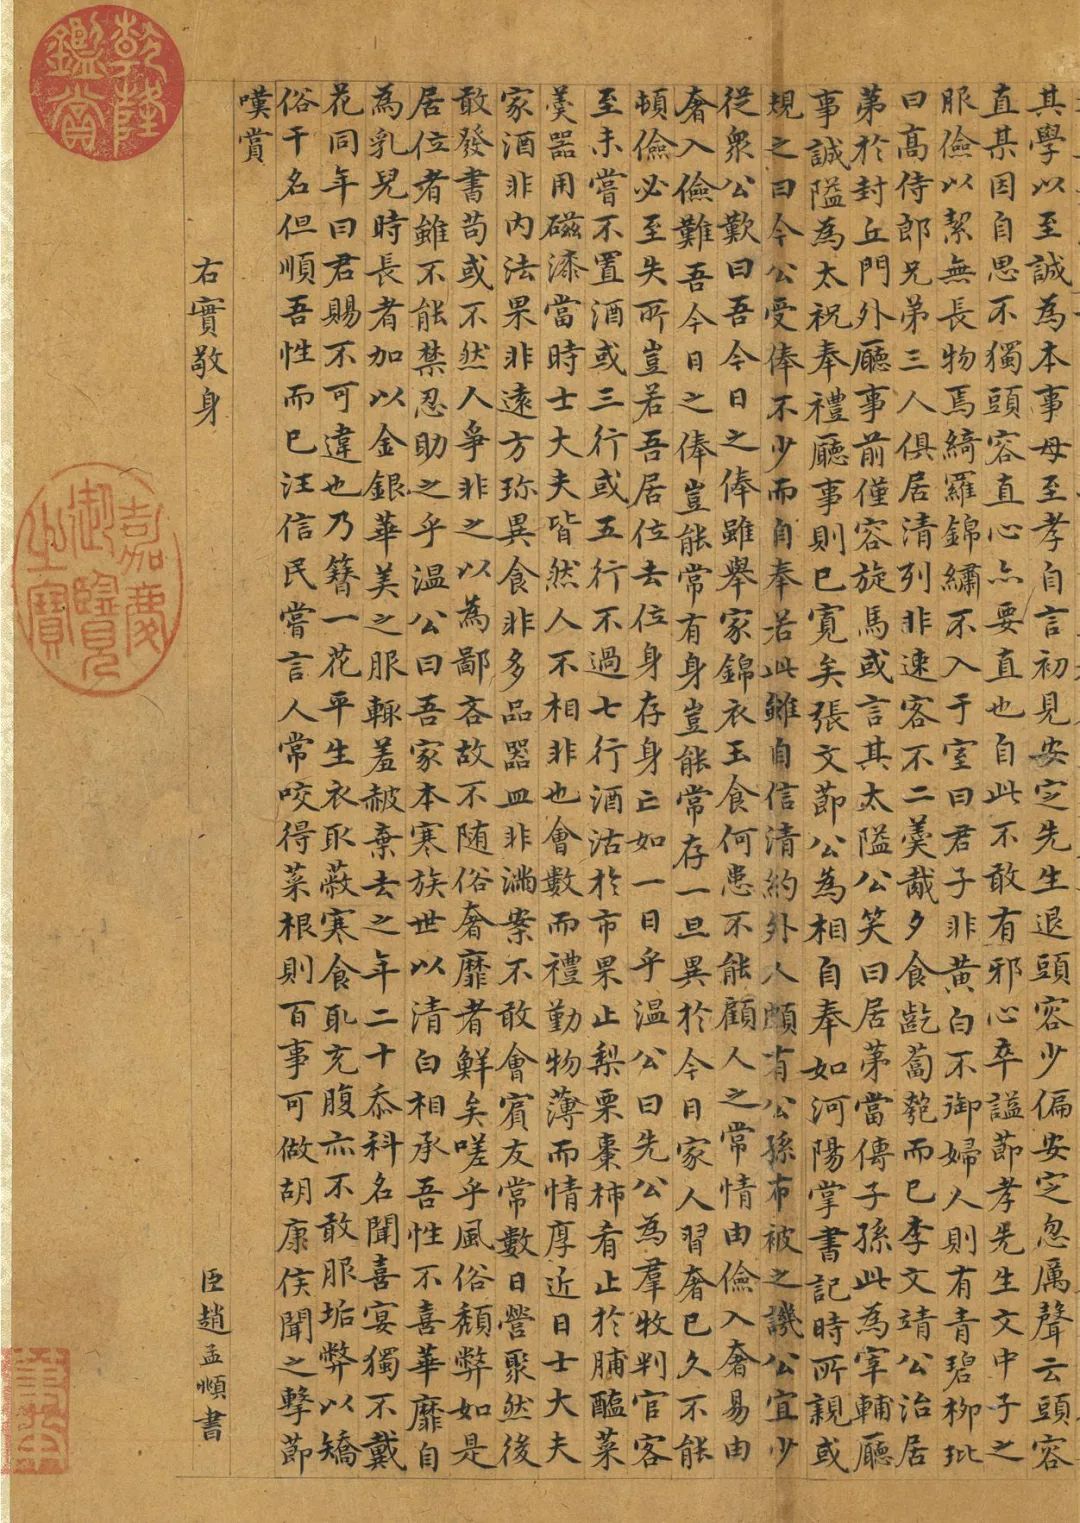 其學以至誠為本事母至孝自言初見安定先生退頭容少偏安定忽厲聲云頭容
直某因自思不獨頭容直心亦要直也自此不敢有邪心卒謚節孝先生文中子之
服儉以絜無長物焉綺羅錦繡不入于室曰君子非黃白不御婦人則有青碧柳玭
曰高侍郎兄弟三人俱居清列非速客不二羹胾夕食齕蔔匏而已李文靖公治居
第於封丘門外廳事前僅容旋馬或言其太隘公笑曰居第當傳子孫此為宰輔廳
事誠隘為太祝奉禮廳事則已寬矣張文節公為相自奉如河陽掌書記時所親或
規之曰今公受俸不少而自奉若此雖自信清約外人頗有公孫布被之譏公宜少
從衆公歎曰吾今日之俸雖舉家錦衣玉食何患不能顧人之常情由儉入奢易由
奢入儉難吾今日之俸豈能常有身豈能常存一旦異於今日家人習奢已久不能
頓儉必至失所豈若吾居位去位身存身亡如一日乎溫公曰先公為羣牧判官客
至未嘗不置酒或三行或五行不過七行酒沽於市果止梨栗棗柿肴止於脯醢菜
羹器用磁漆當時士大夫皆然人不相非也會數而禮勤物薄而情厚近日士大夫
家酒非內法果非遠方珎異食非多品器皿非滿案不敢會賓友常數日營聚然後
敢發書苟或不然人爭非之以為鄙吝故不随俗奢靡者鮮矣嗟乎風俗頹弊如是
居位者雖不能禁忍助之乎溫公曰吾家本寒族世以清白相承吾性不喜華靡自
為乳兒時長者加以金銀華美之服輙羞赧棄去之年二十忝科名聞喜宴獨不戴
花同年曰君賜不可違也乃簪一花平生衣取蔽寒食取充腹亦不敢服垢弊以矯
俗干名但順吾性而已汪信民嘗言人常咬得菜根則百事可做胡康侯聞之擊節
嘆賞
右實敬身
臣趙孟頫書
乾隆鑑賞
嘉慶御覽之寶